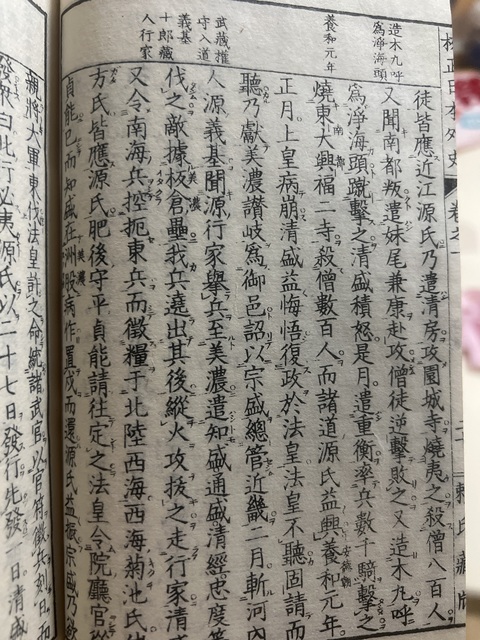 校正日本外史
卷之一
賴氏藏版
造木九呼
爲淨海頭
徒皆應近江源氏乃遣清房攻園城寺燒夷之殺僧八百人
又聞南都叛遣妹尾兼康赴攻僧徒逆擊敗之又造木九呼
爲淨海頭蹴擊之清盛積怒是月遣重衡率兵數千騎擊之
養和元年
燒東大興福二寺殺僧數百人而諸道源氏益興養和元年
正月上皇病崩清盛益悔悟復政於法皇法皇不聽固請而
聽乃獻美濃讚岐爲御邑詔以宗盛總管近畿二月斬河內
武藏權
守入道
義基
十郎藏
人行家
人源義基聞源行家擧兵至美濃遣知盛通盛清經忠度等
伐之敵據板倉壘我兵遶出其後縱火攻拔之走行家清
又令南海兵控扼東兵而徵糧于北陸西海西海菊池氏
方氏皆應源氏肥後守平貞能請往定之法皇令院廳官
貞能已而知盛在洲股病作置戍而還源氏益振宗盛乃欲
親將大軍東伐法皇詫之命統諸武官以官符徵兵刻日而
發衆曰此行必夷源氏以二十七日發行先發一日清盛